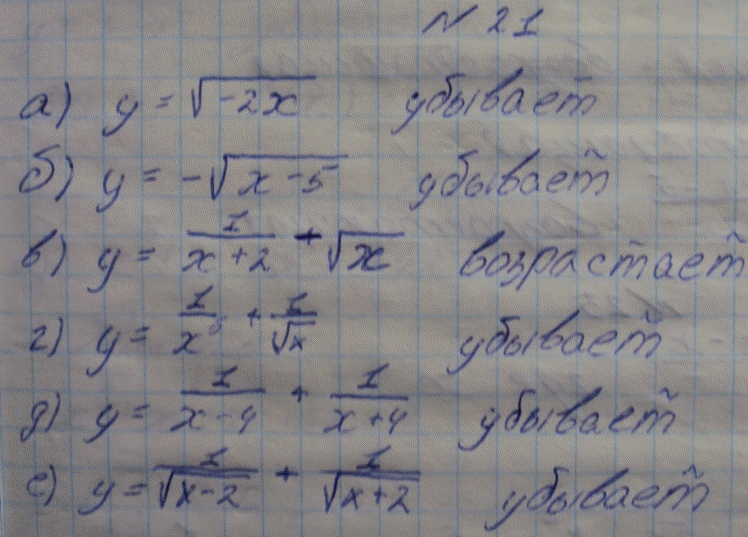 № 21
а) y = √(-2x) убывает
б) y = -√(x-5) убывает
в) y = 1/(x+2) + √x возрастает
г) y = 1/x⁵ + 1/√x убывает
д) y = 1/(x-4) + 1/(x+4) убывает
е) y = 1/√(x-2) + 1/√(x+2) убывает